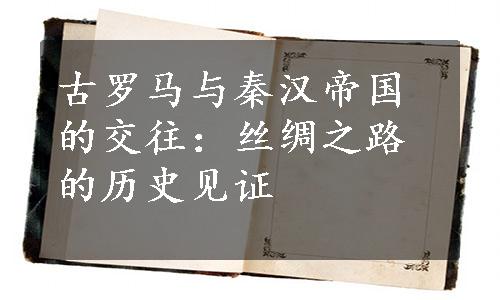 古罗马与秦汉帝国
的交往：丝绸之路
的历史见证